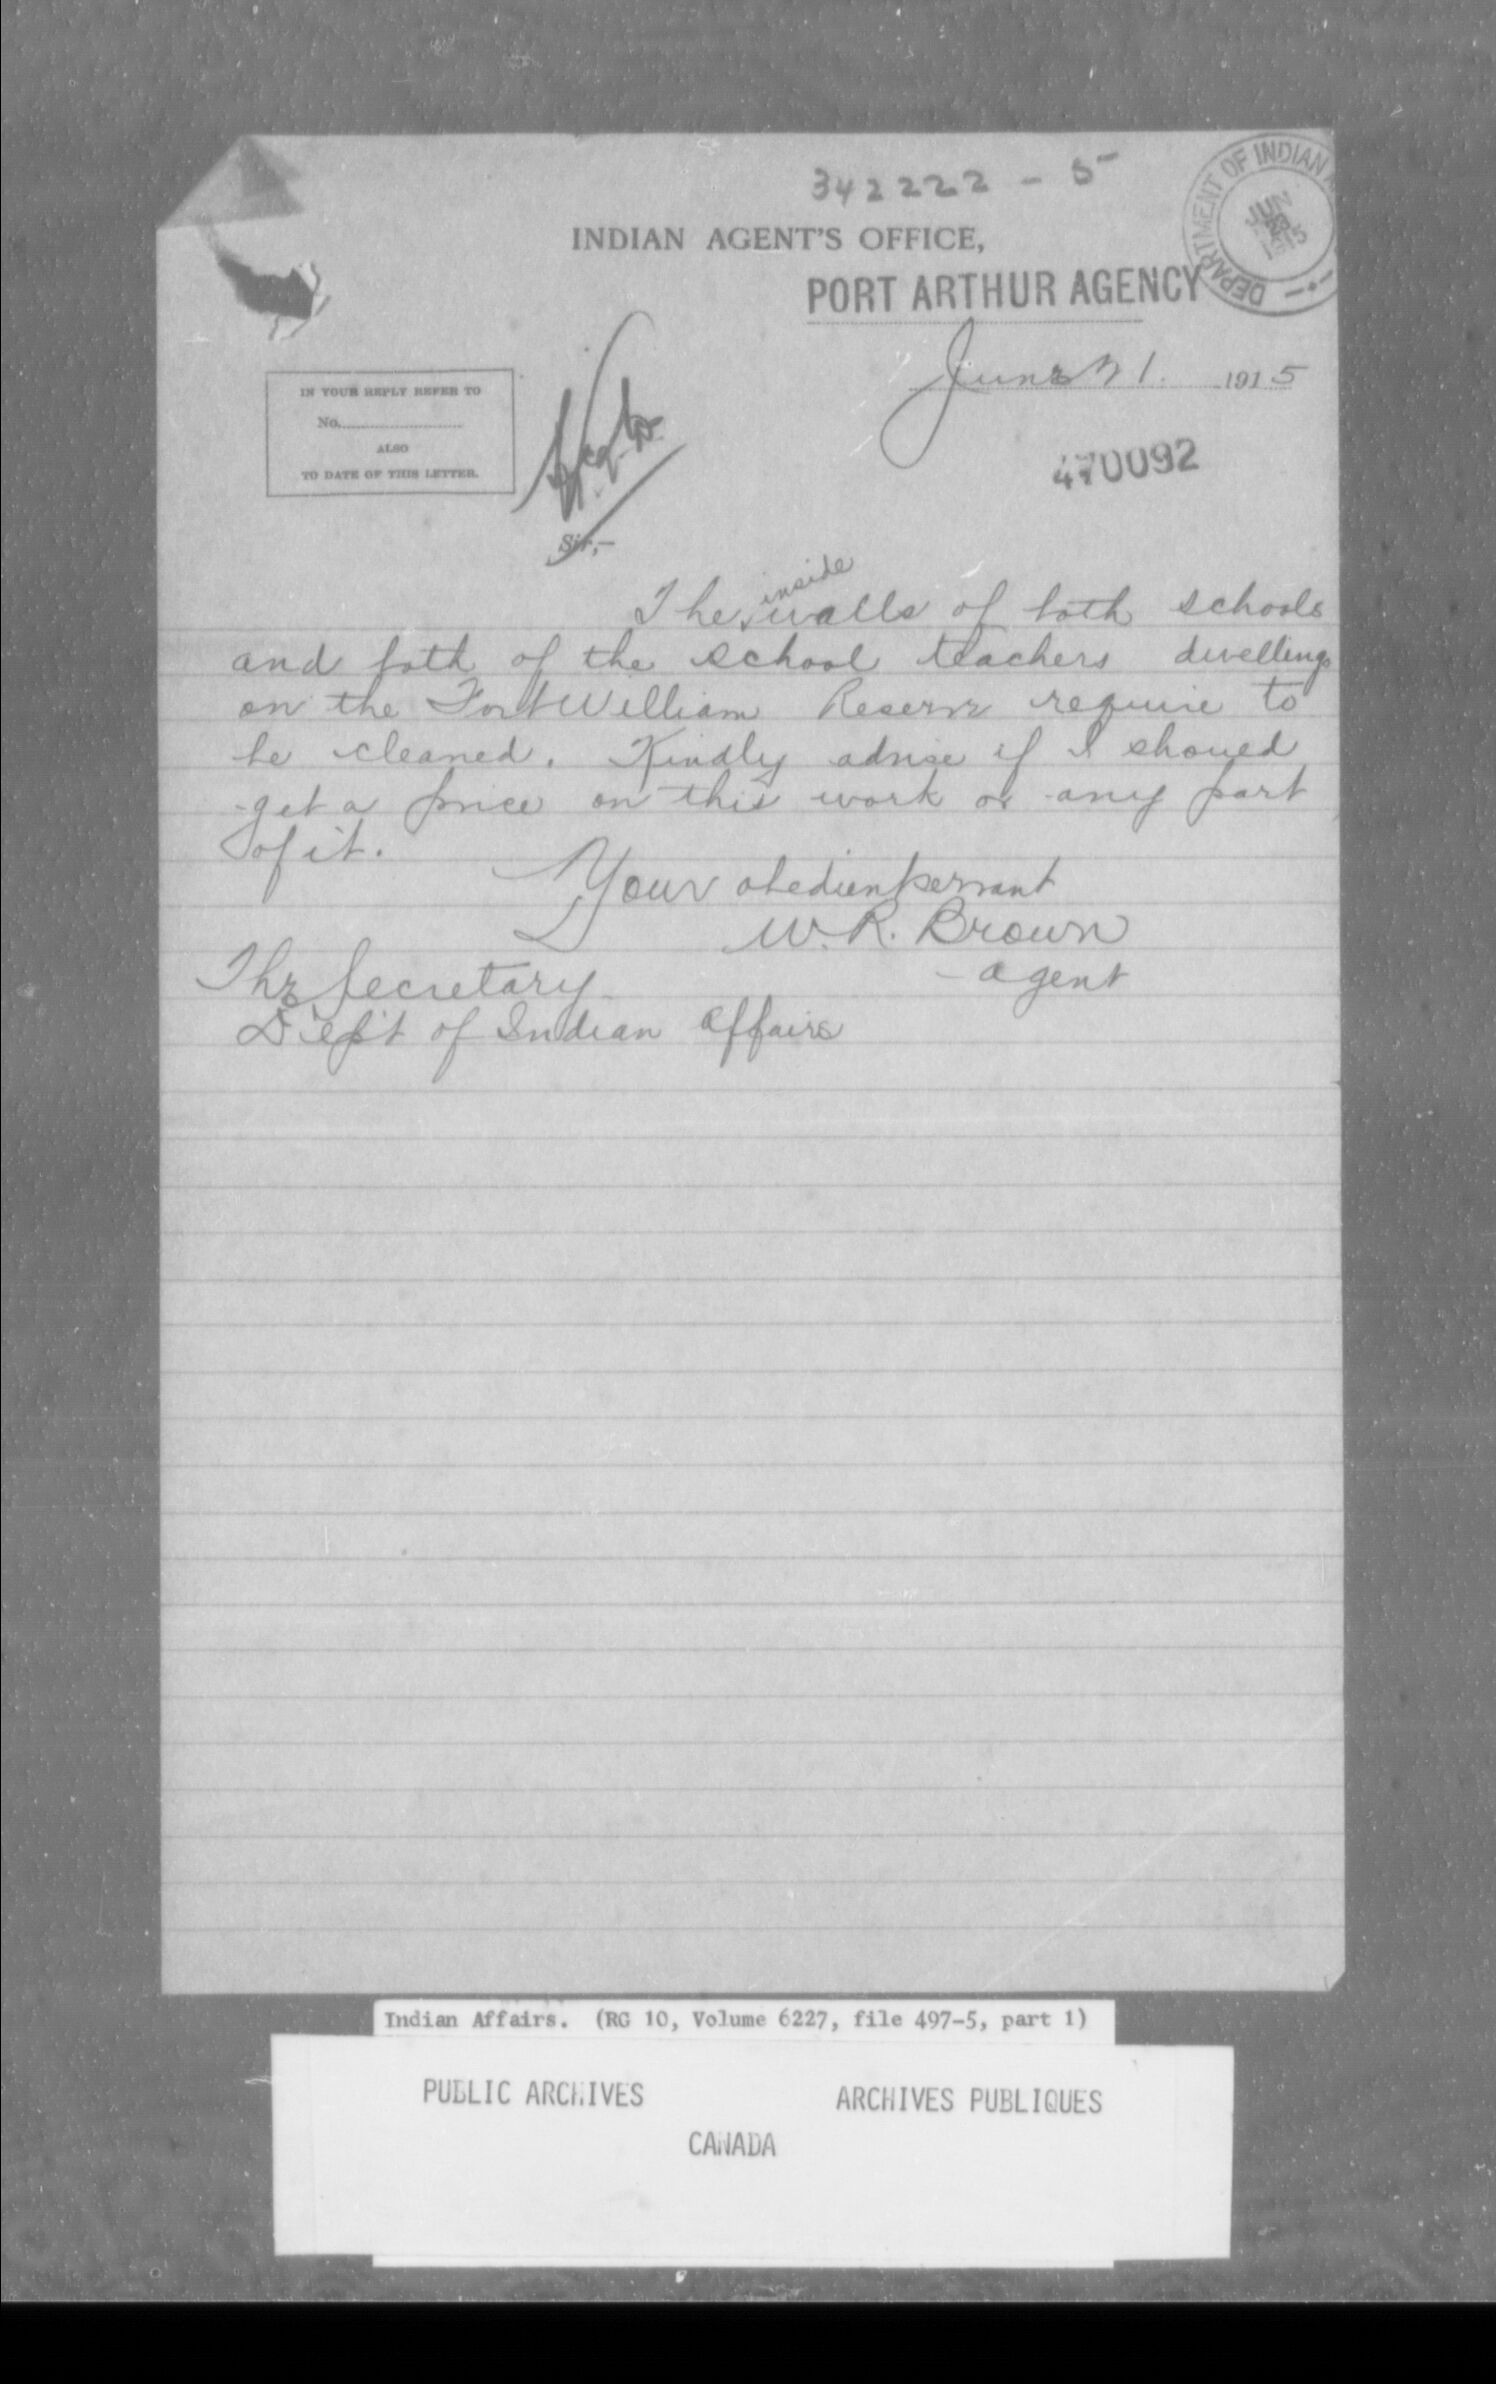 342222 - 5
DEPARTMENT OF INDIAN
JUN
INDIAN AGENT'S OFFICE,
PORT ARTHUR AGENCY
June 21. 1915
IN YOUR REPLY REFER TO
No.
ALSO
TO DATE OF THIS LETTER.
470092
Sir,—
The inside walls of both schools
and both of the school teachers dwellings
on the Fort William Reserve require to
be cleaned. Kindly advise if I should
get a price on this work or any part
of it.
Your obedient servant
W. R. Brown
agent
The Secretary
Dep't of Indian Affairs
Indian Affairs. (RG 10, Volume 6227, file 497-5, part 1)
PUBLIC ARCHIVES ARCHIVES PUBLIQUES
CANADA